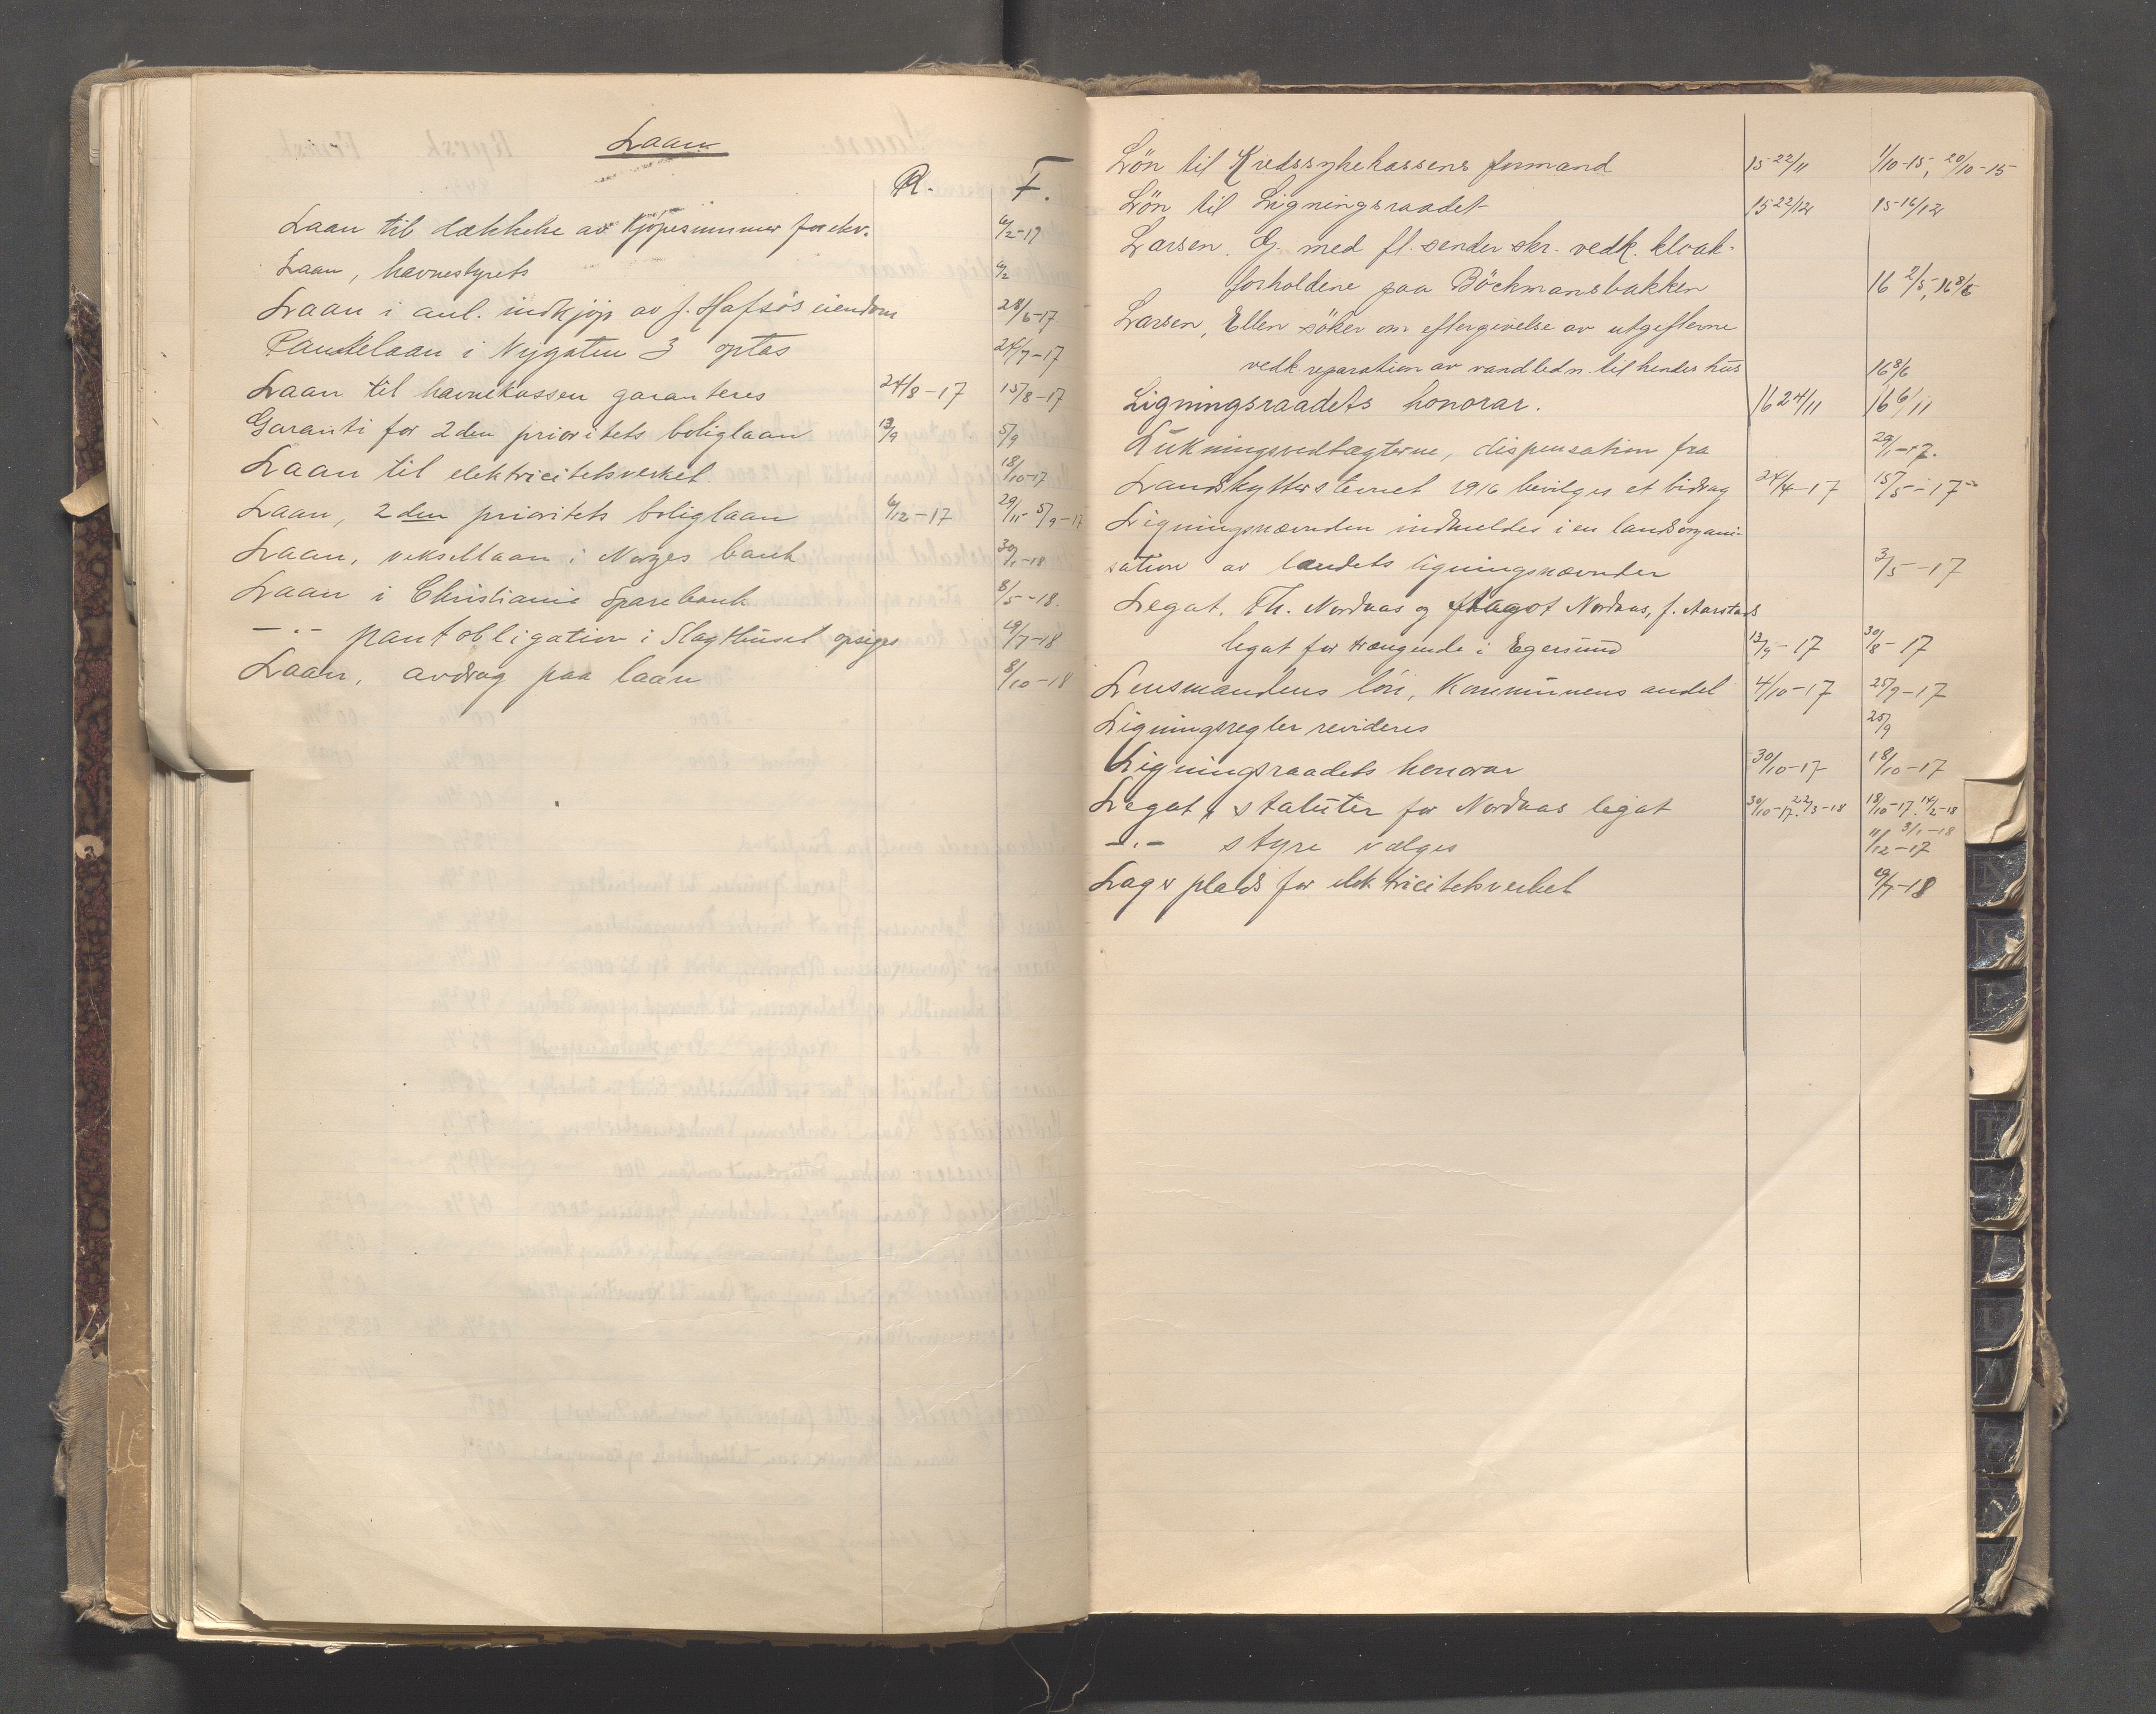 Laan
R. F.
Laan til dækkelse av kjøpesummer for ekv. 6/2-17
Laan, havnestyrets 6/2
Laan i anl. indkjøp av J. Hafsös eiendom 28/6-17
Pantelaan i Nygaten 3 optas 24/7-17
Laan til havnekassen garanteres 24/8-17 15/8-17
Garanti for 2den prioritets boliglaan 13/9 5/9
Laan til elektricitetsverket. 18/10-17
Laan, 2den prioritets boliglaan 6/12-17 29/11- 5/9-17
Laan, veksellaan i Norges bank 30/1-18
Laan i Christiania Sparebank 8/5-18.
-"- pantobligation i Slagthuset opsiges 19/7-18
Laan, avdrag paa laan 8/10-18
Lön til Kredssykekassens formand 15 22/11 1/10-15, 20/10-15
Lön til Ligningsraadet 15 22/12 15 16/12
Larsen, G. med fl. sender skr. vedk. kloak-
forholdene paa Böckmansbakken 16 2/5, 16 8/6
Larsen, Ellen söker om eftergivelse av utgifterne
vedk. reparation av vandledn. til hendes hus 16 8/6
Ligningsraadets honorar. 16 24/11 16 6/11
Lukningsvedtægterne, dispensation fra 29/1-17.
Landskytterstevnet 1916 bevilges et bidrag 24/4-17 15/5-17
Ligningsnævnden indmeldes i en landsorgani-
sation av landets ligningsnævnder 3/5-17
Legat, Th. Nordaas og Nordaas, f. Aarstads
legat for trængende i Egersund 13/9-17 30/8-17
Lensmandens lön, Kommunens andel 4/10-17 25/9-17
Ligningsregler revideres 25/9
Ligningsraadets honorar 30/10-17 18/10-17
Legat, statuter for Nordaas legat 30/10-17. 22/3-18 18/10-17. 14/2-18
-"- styre vælges 11/12-17 3/1-18
Lagerplads for elektricitetsverket 19/7-18